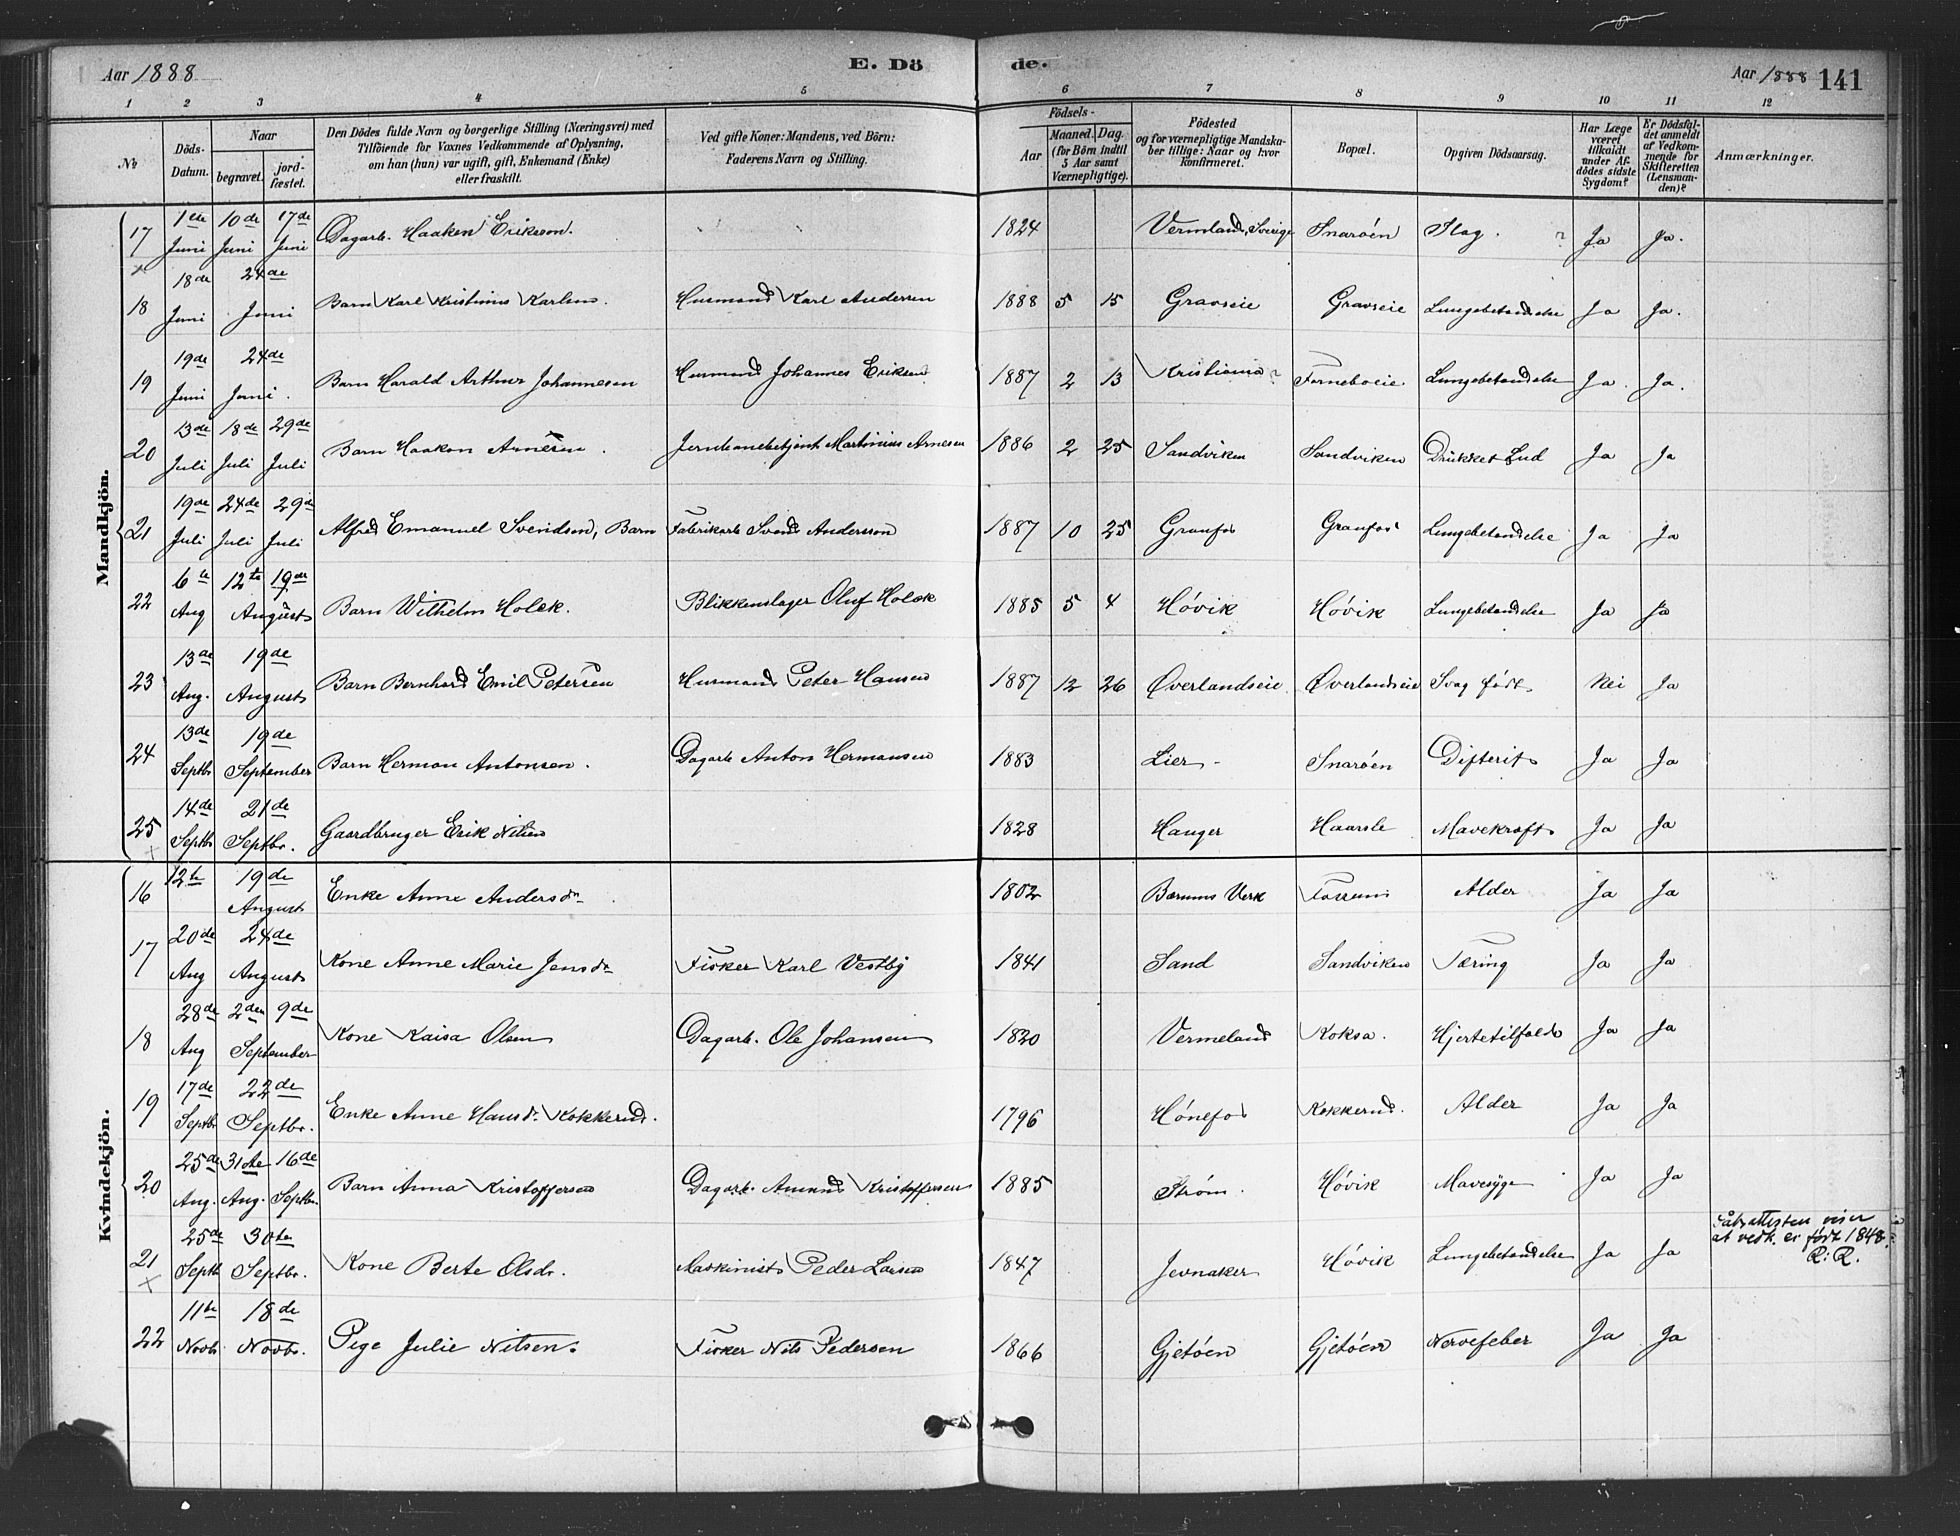 Aar 1888
E. Döde.
Aar 1888 141
1 2 3 4 5 6 7 8 9 10 11 12
№
Döds-Datum.
Naar
begravet.
jordfæstet.
Den Dödes fulde Navn og borgerlige Stilling (Næringsvei) med
Tilföiende for Voxnes Vedkommende af Oplysning,
om han (hun) var ugift, gift, Enkemand (Enke)
eller fraskilt.
Ved gifte Koner: Mandens, ved Börn:
Faderens Navn og Stilling.
Födsels-
Aar
Maaned. Dag.
(for Börn indtil
5 Aar samt
Værnepligtige).
Födested
og for værnepligtige Mandskaber tillige: Naar og hvor
Konfirmeret.
Bopæl.
Opgiven Dödsaarsag.
Har Læge været tilkaldt under Afdödes sidste Sygdom?
Er Dödsfaldet anmeldt af Vedkommende for Skifteretten (Lensmanden)?
Anmærkninger.
Mandkjön.
17 1ste Juni 10de Juni 17de Juni Dagarb. Haaken Erikson. 1824 Vermland, Sverige Snarøen Slag. ? Ja Ja.
18 18de Juni 24de Juni Barn Karl Kristinius Karlsen. Husmand Karl Andersen 1888 5 15 Gravseie Gravseie Lungebetændelse Ja Ja.
19 19de Juni 24de Juni. Barn Harald Arthur Johannesen Husmand Johannes Eriksen 1887 2 13 Kristiania? Forneboeie Lungebetændelse Ja. Ja.
20 13de Juli 18de Juli 29de Juli Barn Haakon Arnesen. Jernbanebetjent Martinius Arnesen 1886 2 25 Sandviken Sandviken Drukket Lud Ja Ja
21 19de Juli 24de Juli 29de Juli Alfred Emanuel Svendsen, Barn Fabrikarb Svend Andersson 1887 10 25 Granfos Granfos Lungebetændelse Ja Ja
22 6te Aug 12te 19de August Barn Wilhelm Holck. Blikkenslager Oluf Holck 1885 5 4 Høvik Høvik Lungebetændelse Ja Ja
23 13de Aug. 19de August Barn Bernhard Emil Petersen Husmand Peter Hansen 1887 12 26 Øverlandseie Øverlandseie Svag født Nei Ja
24 13de Septbr 19de September Barn Herman Antonsen. Dagarb Anton Hermansen 1883 Lier - Snarøen Difterit Ja Ja
25 14de Septbr 21de Septbr. Gaardbruger Erik Nilsen 1828 Hanger Haarsle Mavekræft Ja Ja
Kvindekjön.
16 12te 19de August Enke Anne Andersdr 1802 Bærums Verk Fossum Alder Ja Ja
17 20de Aug 24de August Kone Anne Marie Jensdr Fisker Karl Vestby 1841 Sand Sandviken Tæring Ja Ja
18 28de Aug 2den 9de September Kone Kaisa Olsen Dagarb. Ole Johansen 1820 Vermeland Koksa. Hjertetilfælde Ja Ja
19 17de Septbr 22de Septbr. Enke Anne Hansdr. Kokkerud. 1796 Hønefos Kokkerud. Alder Ja Ja
20 25de Aug. 31ste Aug. 16de Septbr. Barn Anna Kristoffersen Dagarb. Amund Kristoffersen 1885 Strøm. Høvik Mavesyge Ja Ja
21 25de Septb 30te Septbr. Kone Berte Olsdr. Maskinist Peder Larsen 1847 Jevnaker Høvik Lungebetændelse Ja Ja Dåbsattesten viser
at vedk. er født 1848.
R: R.
22 11te Novb. 18de Novbr. Pige Julie Nilsen. Fisker Nils Pedersen 1866 Gjetøen Gjetøen Nervefeber Ja Ja